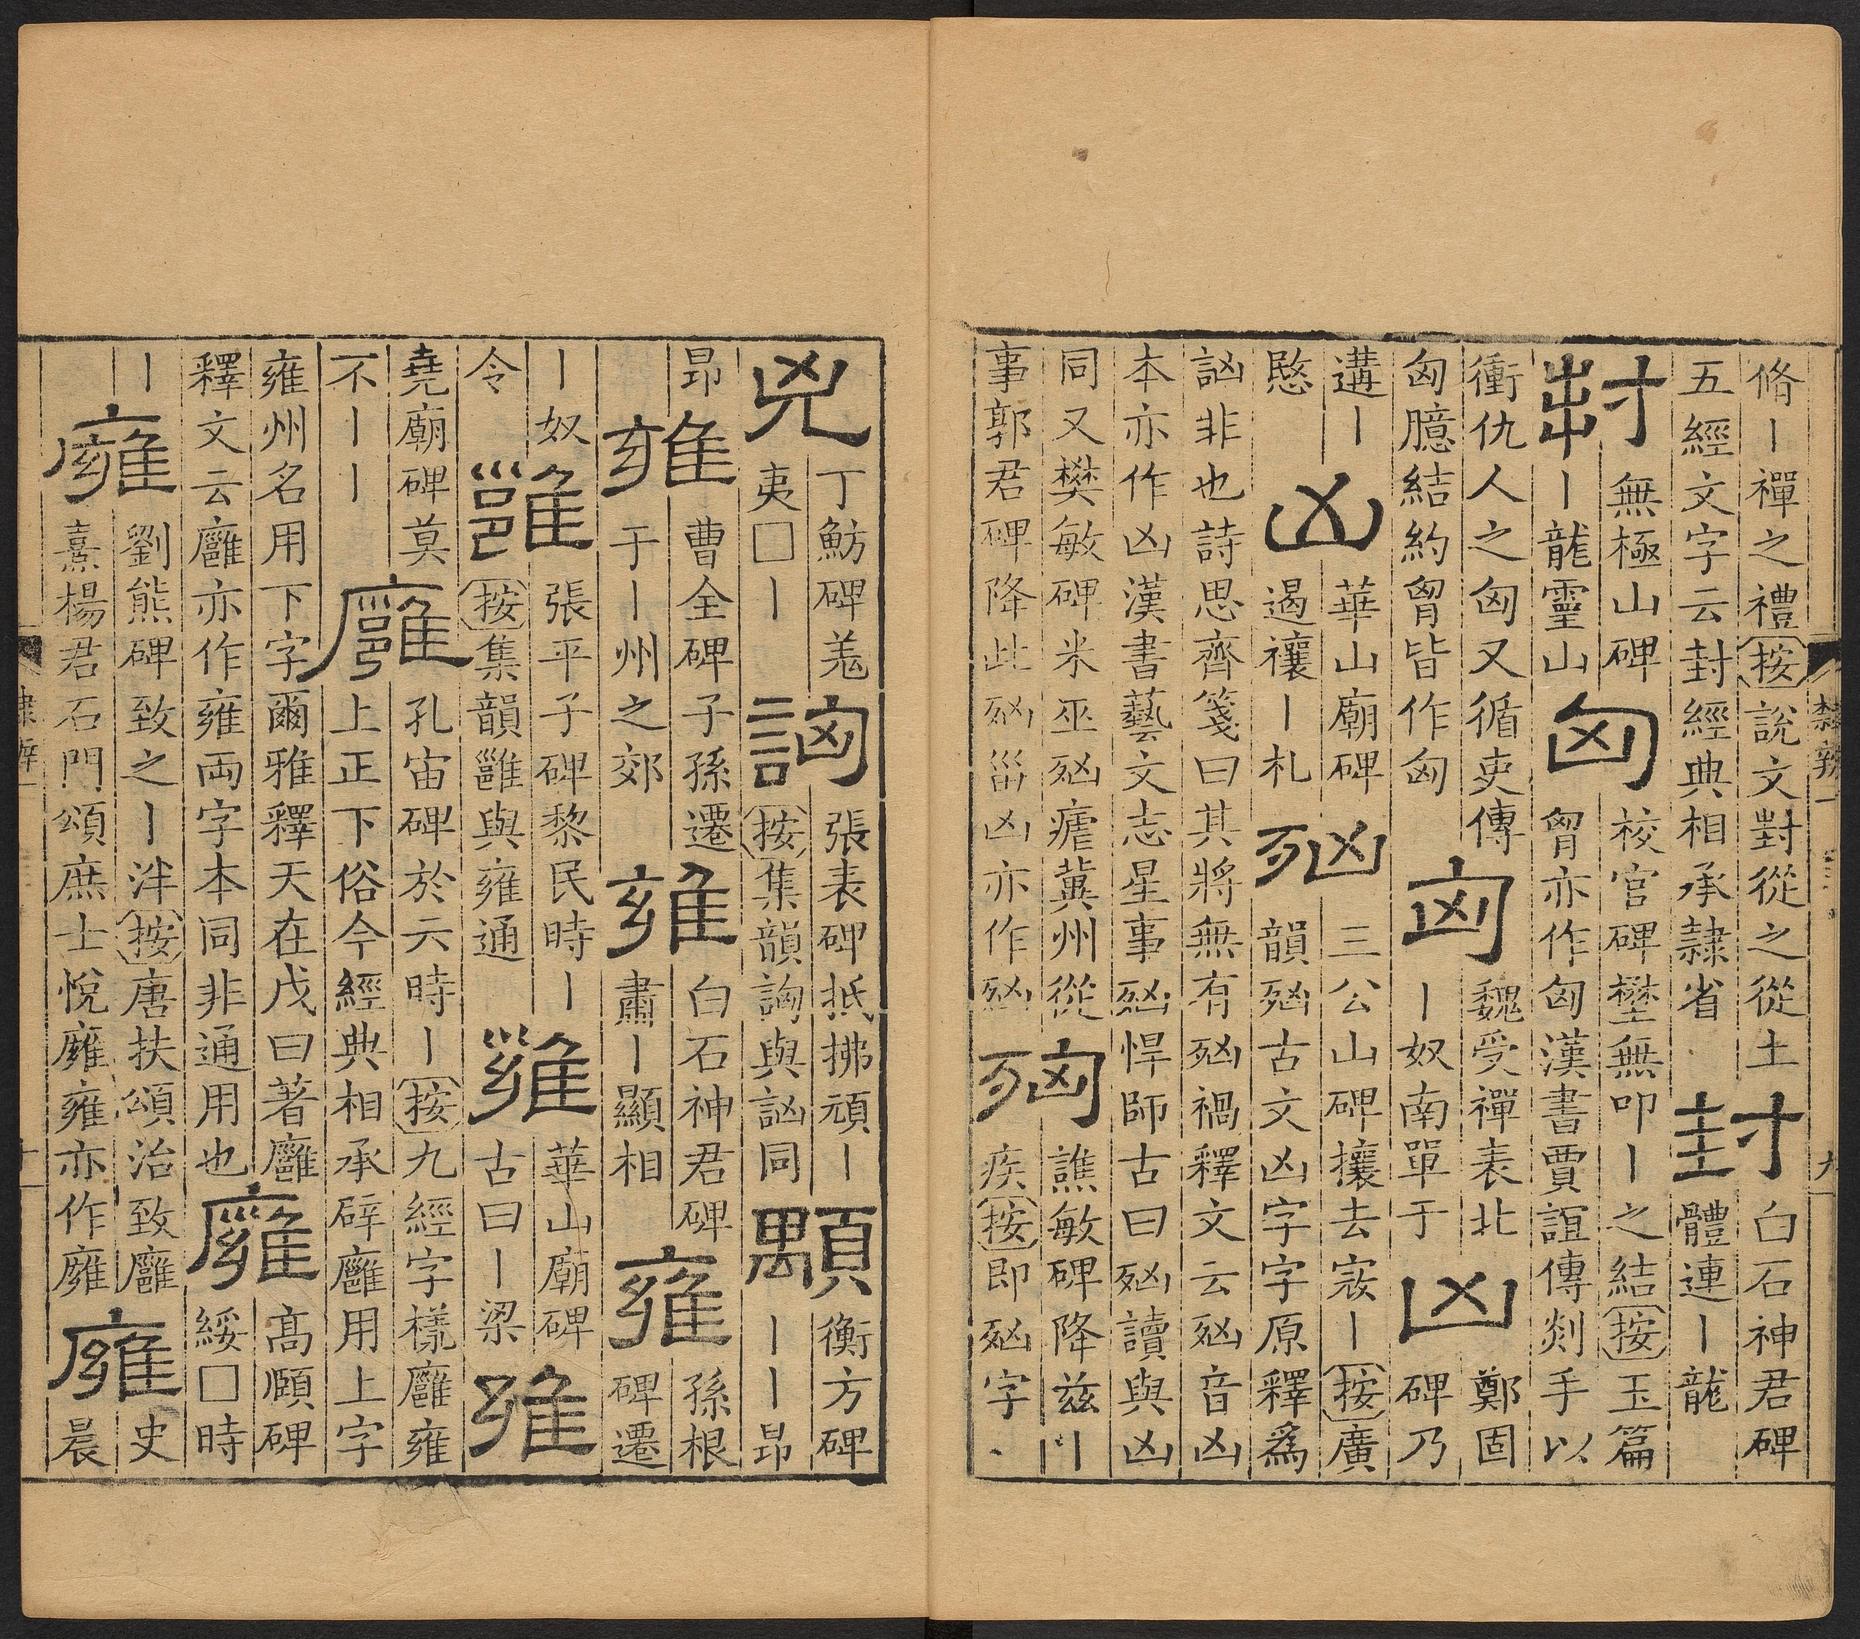 脩丨禪之禮按說文封從之從土
五經文字云封經典相承隸省
封
白石神君碑
體連丨龍
封
無極山碑
丨龍靈山
匈
校官碑壄無叩丨之結按玉篇
胷亦作匈漢書賈誼傳剡手以
衝仇人之匈又循吏傳
匈臆結約胷皆作匈
匈
魏受禪表北
丨奴南單于
凶
鄭固
碑乃
遘丨
愍
凶
華山廟碑
遏禳丨札
𣧑
三公山碑攘去寇丨按廣
韻𣧑古文凶字字原釋爲
訩非也詩思齊箋曰其將無有𣧑禍釋文云𣧑音凶
本亦作凶漢書藝文志星事𣧑悍師古曰𣧑讀與凶
同又樊敏碑米巫𣧑瘧冀州從
事郭君碑降此𣧑甾凶亦作𣧑
譙敏碑降茲
疾按即𣧑字
隸辨一
九
兇
丁魴碑羗
夷□丨
詾
張表碑抵拂頑丨
按集韻詾與訩同
顒
衡方碑
丨丨昂
昂
雍
曹全碑子孫遷
于丨州之郊
雍
白石神君碑
肅丨顯相
雍
孫根
碑遷
丨奴
令
雝
張平子碑黎民時丨
按集韻雝與雍通
雍
華山廟碑
古曰丨梁
雍
堯廟碑莫
不丨丨
廱
孔宙碑於亓時丨按九經字樣廱雍
上正下俗今經典相承辟廱用上字
雍州名用下字爾雅釋天在戊曰著廱
釋文云廱亦作雍両字本同非通用也
廱
高頤碑
綏□時
丨
廱
劉熊碑致之丨泮按唐扶頌治致廱
熹楊君石門頌庶士悅廱雍亦作廱
廱
史
晨